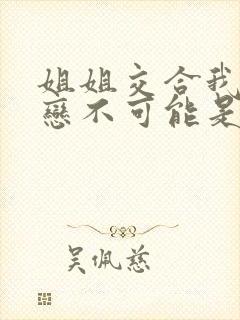 姐姐交合我
戀不可能是
吴佩慈